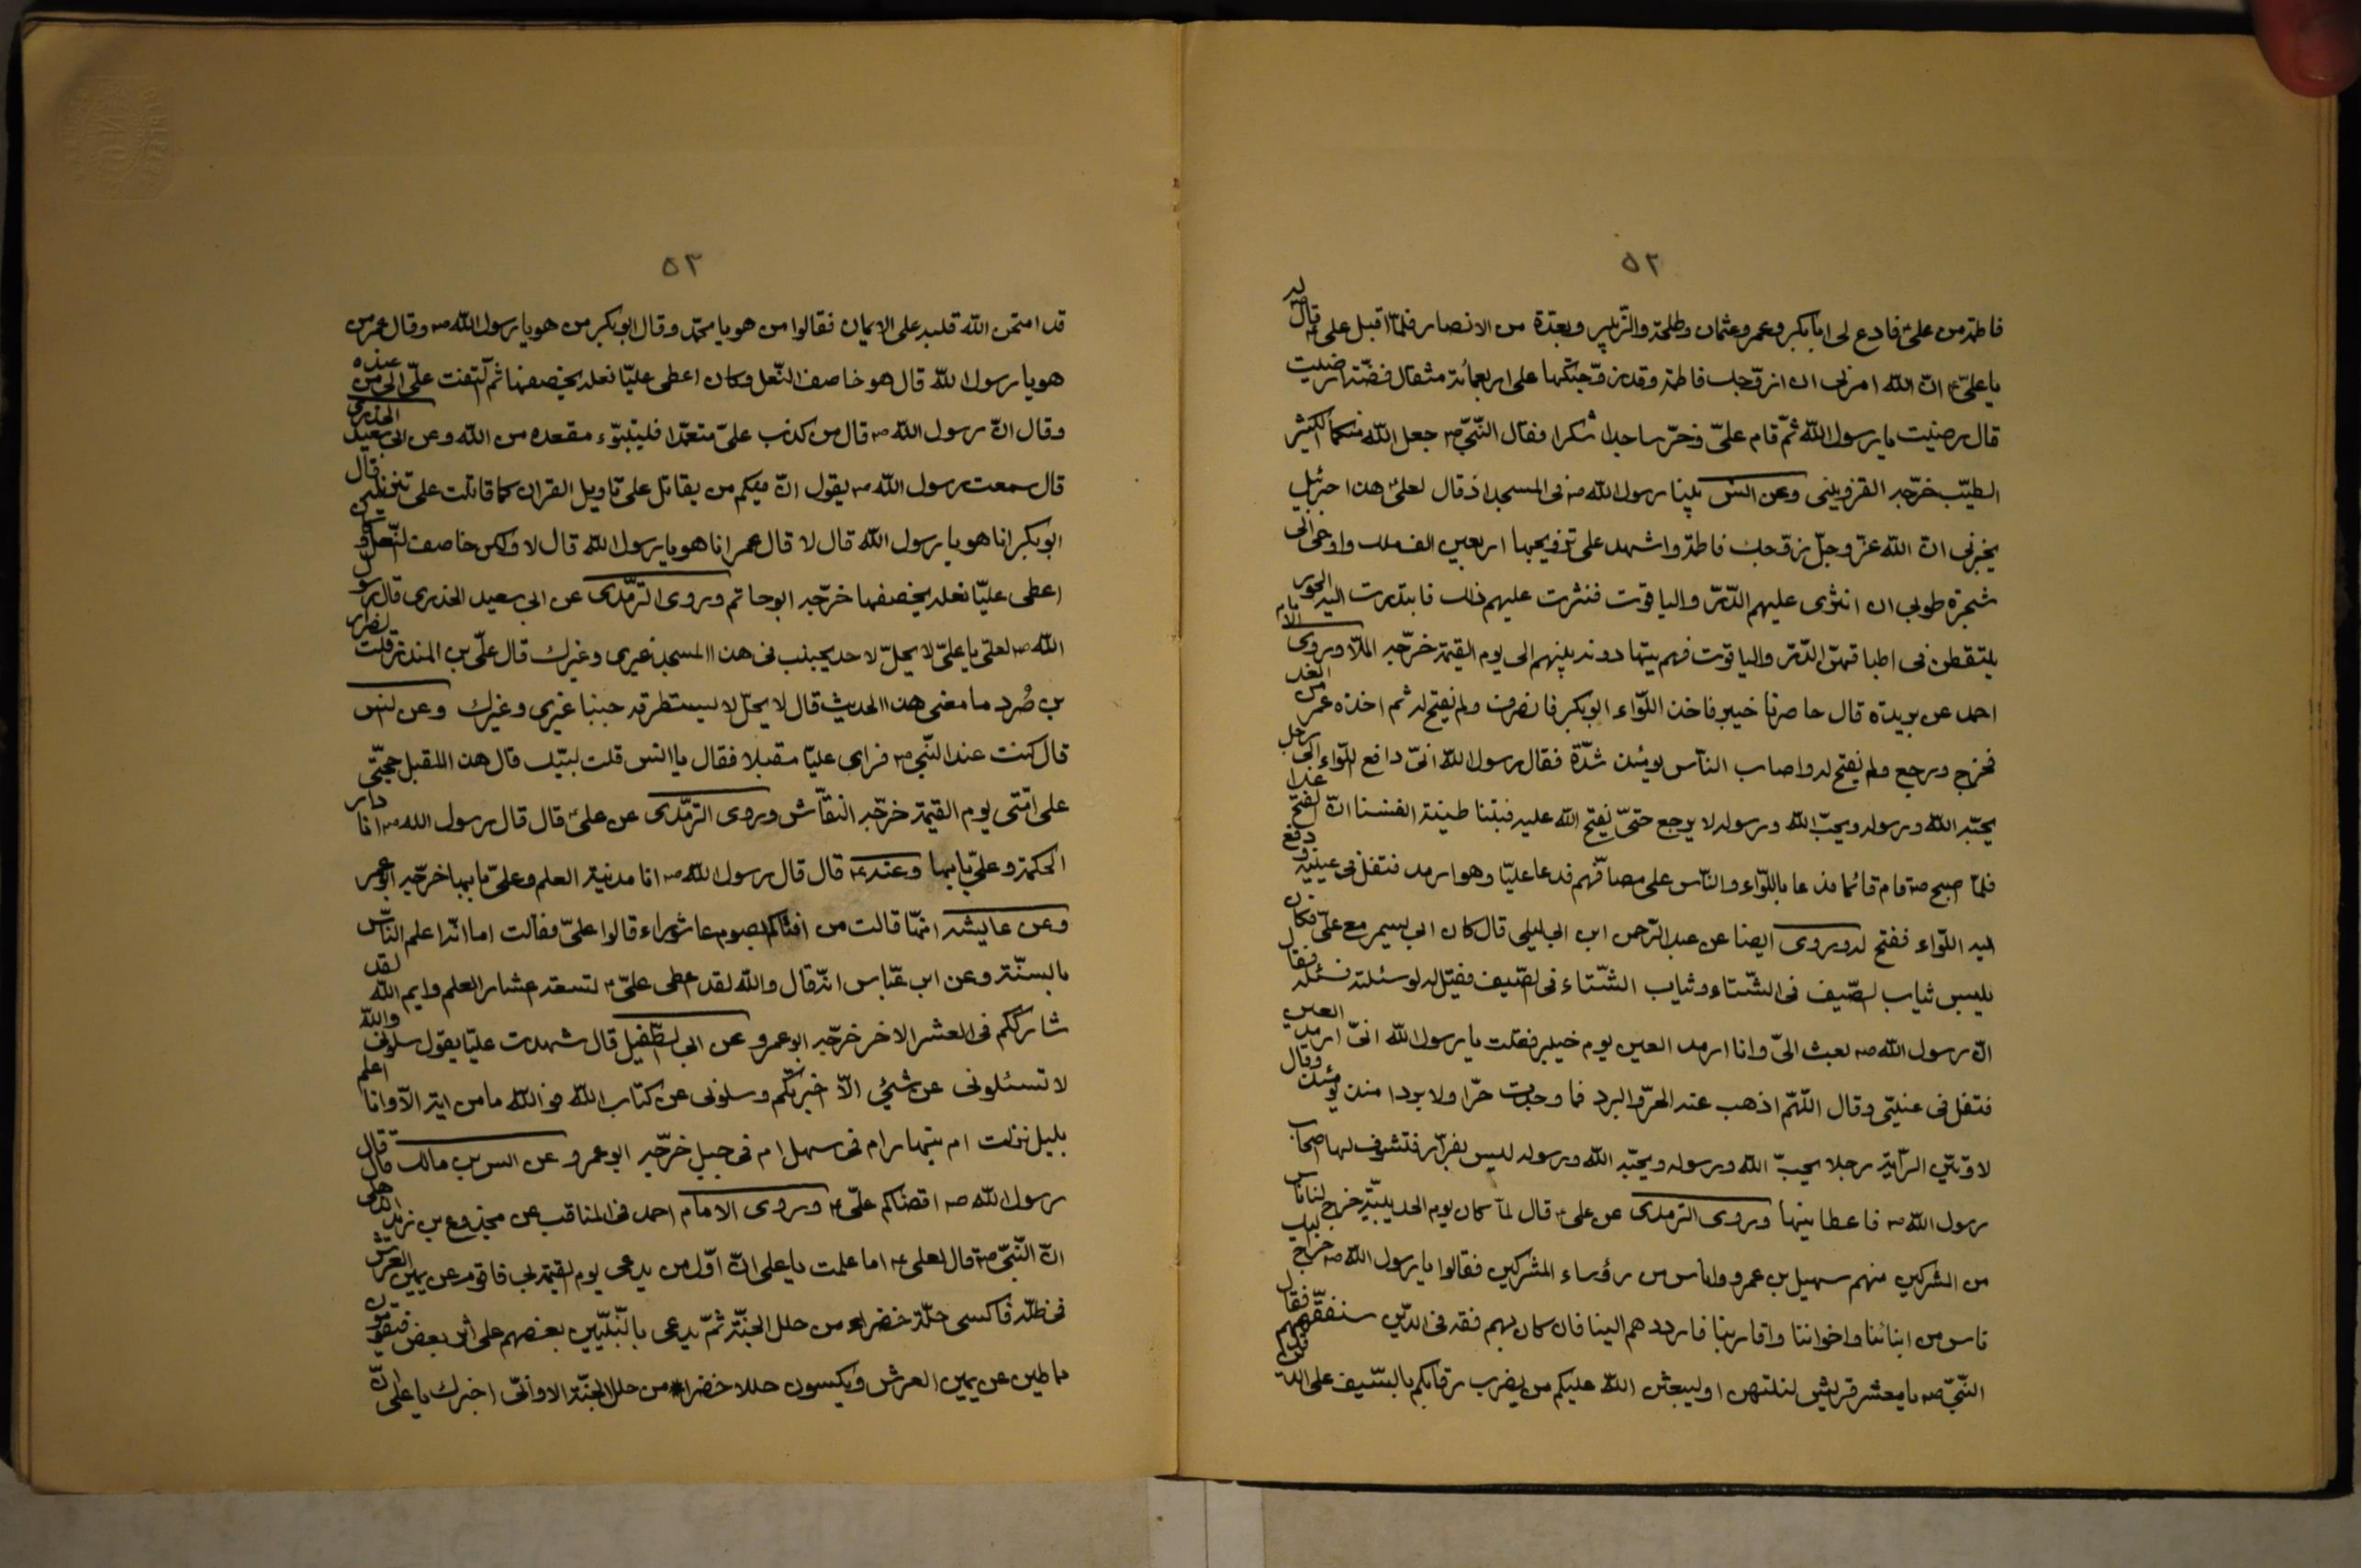 ٥٢
فاطمة من علىّ فادع لى ابابكر وعمر وعثمان وطلحة والزّبير وبعدّة من الانصار فلمّا اقبل علىّ قال له
يا علىّ انّ الله امرنى ان ازوّجك فاطمة وقد زوّجتكها على اربعمائة مثقال فضّة ارضيت
قال رضيت يا رسول الله ثمّ قام علىّ فخرّ ساجدا شكرا فقال النّبىّ ص جعل الله منكما الكثير
الطيّب خرّجه القزوينى وعن انس بينا رسول الله ص فى المسجد اذ قال لعلىّ هذا جبرئيل
يخبرنى انّ الله عزّ وجلّ زوّجك فاطمة واشهد على تزويجها اربعين الف ملك واوحى الى
شجرة طوبى ان انثرى عليهم الدّرّ والياقوت فنثرت عليهم ذلك فابتدرت اليه الحور
يلتقطن فى اطباقهنّ الدّرّ والياقوت فهم يتهادونه بينهم الى يوم القيمة خرّجه الملّا وروى الامام
احمد عن بريدة قال حاصرنا خيبر فاخذ اللّواء ابوبكر فانصرف ولم يفتح له ثم اخذه عمر من الغد
فخرج ورجع ولم يفتح له واصاب النّاس يومئذ شدّة فقال رسول الله انّى دافع اللّواء الى رجل
يحبّه الله ورسوله ويحبّ الله ورسوله لا يرجع حتّى يفتح الله عليه فبتنا طيّبة انفسنا انّ الفتح غدا
فلمّا اصبح ص قام قائما فدعا باللّواء والنّاس على مصافّهم فدعا عليّا وهو ارمد فتفل فى عينيه ودفع
اليه اللّواء ففتح له وروى ايضا عن عبد الرّحمن ابن ابى ليلى قال كان ابى يسمر مع علىّ فكان
يلبس ثياب الصّيف فى الشّتاء وثياب الشّتاء فى الصّيف فقيل له لو سئلته فسئله فقال
انّ رسول الله ص بعث الىّ وانا ارمد العين يوم خيبر فقلت يا رسول الله انّى ارمد العين
فتفل فى عينىّ وقال اللّهمّ اذهب عنه الحرّ والبرد فما وجدت حرّا ولا بردا منذ يومئذ وقال
لاعطينّ الرّاية رجلا يحبّ الله ورسوله ويحبّه الله ورسوله ليس بفرّار فتشرف لها اصحاب
رسول الله ص فاعطانيها وروى الترمذى عن علىّ قال لمّا كان يوم الحديبيّة خرج لنا ناس
من المشركين منهم سهيل بن عمرو واناس من رؤساء المشركين فقالوا يا رسول الله ص خرج اليك
ناس من ابنائنا واخواننا واقاربنا فارددهم الينا فان كان بهم فقه فى الدّين سنفقّههم فقال
النّبىّ ص يا معشر قريش لتنتهنّ او ليبعثن الله عليكم من يضرب رقابكم بالسّيف على الدّين
٥٣
قد امتحن الله قلبه على الايمان فقالوا من هو يا محمّد وقال ابوبكر من هو يا رسول الله ص وقال عمر من
هو يا رسول الله قال هو خاصف النّعل وكان اعطى عليّا نعله يخصفها ثم التفت علىّ الى من عنده
وقال انّ رسول الله ص قال من كذب علىّ متعمّدا فليتبوّء مقعده من الله وعن ابى سعيد الخدرى
قال سمعت رسول الله ص يقول انّ فيكم من يقاتل على تاويل القران كما قاتلت على تنزيله قال
ابوبكر انا هو يا رسول الله قال لا قال عمر انا هو يا رسول الله قال لا ولكن خاصف النّعل وكان
اعطى عليّا نعله يخصفها خرّجه ابوحاتم وروى الترمّذى عن ابى سعيد الخدرى قال رسول
الله ص لعلىّ يا علىّ لا يحلّ لاحد يجنب فى هذا المسجد غيرى وغيرك قال علىّ بن المنذر قلت لضرار
بن صُرد ما معنى هذا الحديث قال لا يحلّ لا يستطرقه جنبا غيرى وغيرك وعن انس
قال كنت عند النّبىّ ص فراى عليّا مقبلا فقال يا انس قلت لبّيك قال هذا المقبل حجّتى
على امّتى يوم القيمة خرّجه النقّاش وروى الترمّذى عن علىّ قال قال رسول الله ص انا دار
الحكمة وعلىّ بابها وعنه ع قال قال رسول الله ص انا مدينة العلم وعلىّ بابها خرّجه ابوعمر
وعن عايشه انّها قالت من افتاكم بصوم عاشوراء قالوا علىّ فقالت اما انّه اعلم النّاس
بالسنّة وعن ابن عبّاس انّه قال والله لقد اعطى علىّ ع تسعة اعشار العلم وايم الله لقد
شارككم فى العشر الاخر خرّجه ابوعمرو عن ابى الطّفيل قال شهدت عليّا يقول سلونى والله
لا تسئلونى عن شئ الّا اخبرتكم وسلونى عن كتاب الله فوالله ما من اية الّا وانا اعلم
بليل نزلت ام بنهار ام فى سهل ام فى جبل خرّجه ابوعمرو عن انس بن مالك قال قال
رسول الله ص اقضاكم علىّ ع وروى الامام احمد فى المناقب عن مجذوع بن زيد الذهلى
انّ النّبىّ ص قال لعلى ع اما علمت يا على انّ اوّل من يدعى يوم القيمة بى فاقوم عن يمين العرش
فى ظلّه فاكسى حلّة خضراء من حلل الجنّة ثمّ يدعى بالنّبيّين بعضهم على اثر بعض فيقومون
سماطين عن يمين العرش ويكسون حللا خضراء من حلل الجنّة الا وانّى اخبرك يا على انّ